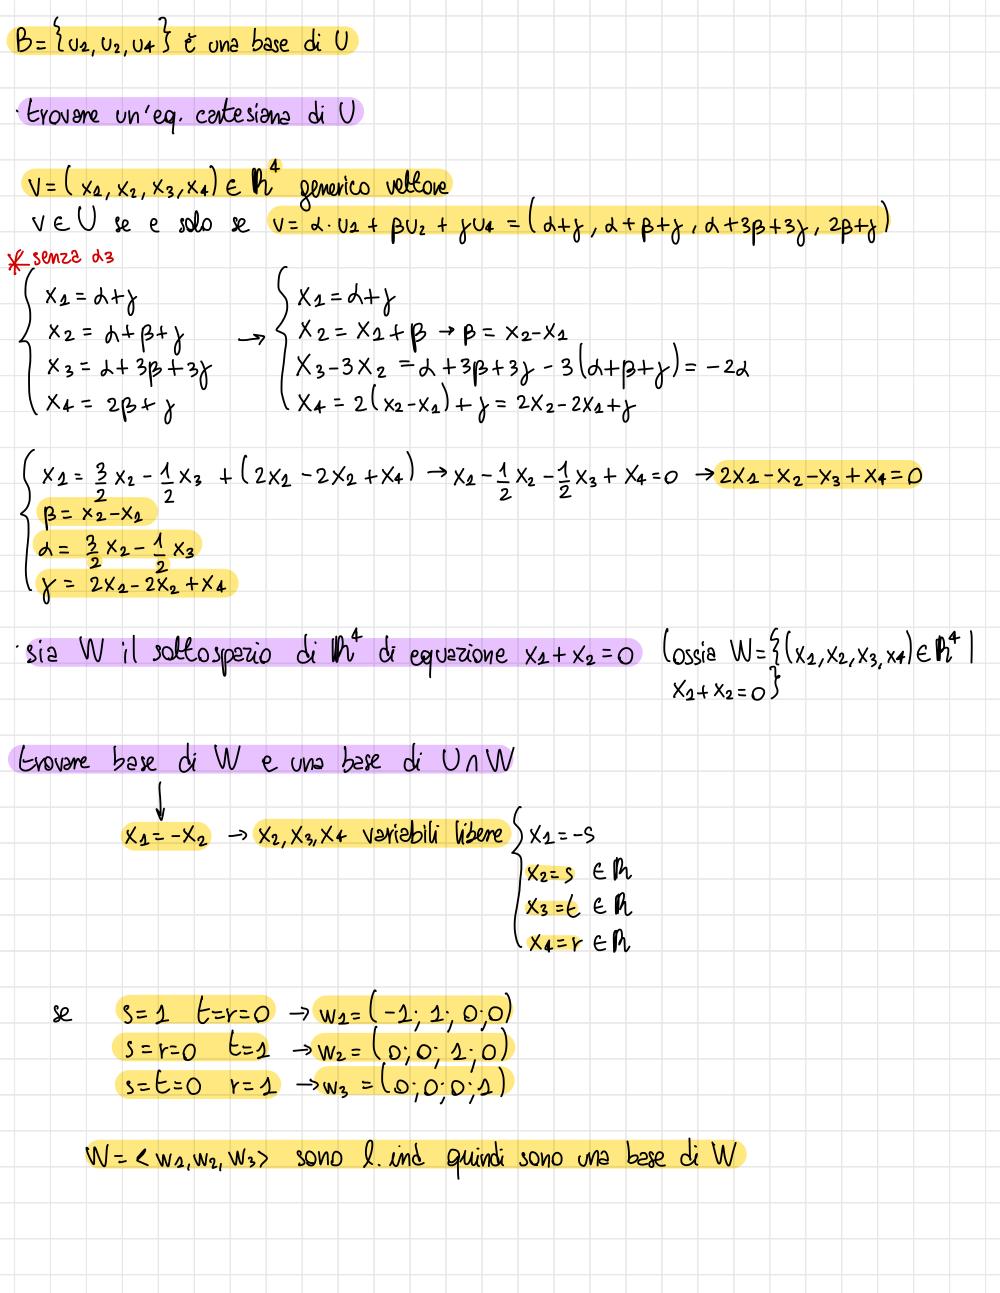 B={u1, u2, u4} è una base di U
· trovare un'eq. cartesiana di U
v=(x1, x2, x3, x4) ∈ ℝ⁴ generico vettore
v ∈ U se e solo se v= α·u1 + βu2 + γu4 = (α+γ, α+β+γ, α+3β+3γ, 2β+γ)
* senza α3
{ x1 = α+γ { x1 = α+γ
x2 = α+β+γ → x2 = x1+β → β = x2-x1
x3 = α+3β+3γ x3-3x2 = α+3β+3γ - 3(α+β+γ) = -2α
x4 = 2β+γ x4 = 2(x2-x1)+γ = 2x2-2x1+γ
{ x1 = 3/2 x2 - 1/2 x3 + (2x1 - 2x2 + x4) → x1 - 1/2 x2 - 1/2 x3 + x4 = 0 → 2x1-x2-x3+x4=0
β = x2-x1
α = 3/2 x2 - 1/2 x3
γ = 2x1-2x2+x4
· sia W il sottospazio di ℝ⁴ di equazione x1+x2=0 (ossia W={(x1,x2,x3,x4)∈ℝ⁴|
x1+x2=0}
trovare base di W e una base di U∩W
↓
x1=-x2 → x2, x3, x4 variabili libere { x1=-s
x2=s ∈ℝ
x3=t ∈ℝ
x4=r ∈ℝ
se s=1 t=r=0 → w1=(-1; 1; 0; 0)
s=r=0 t=1 → w2=(0; 0; 1; 0)
s=t=0 r=1 → w3=(0; 0; 0; 1)
W=<w1, w2, w3> sono l. ind quindi sono una base di W